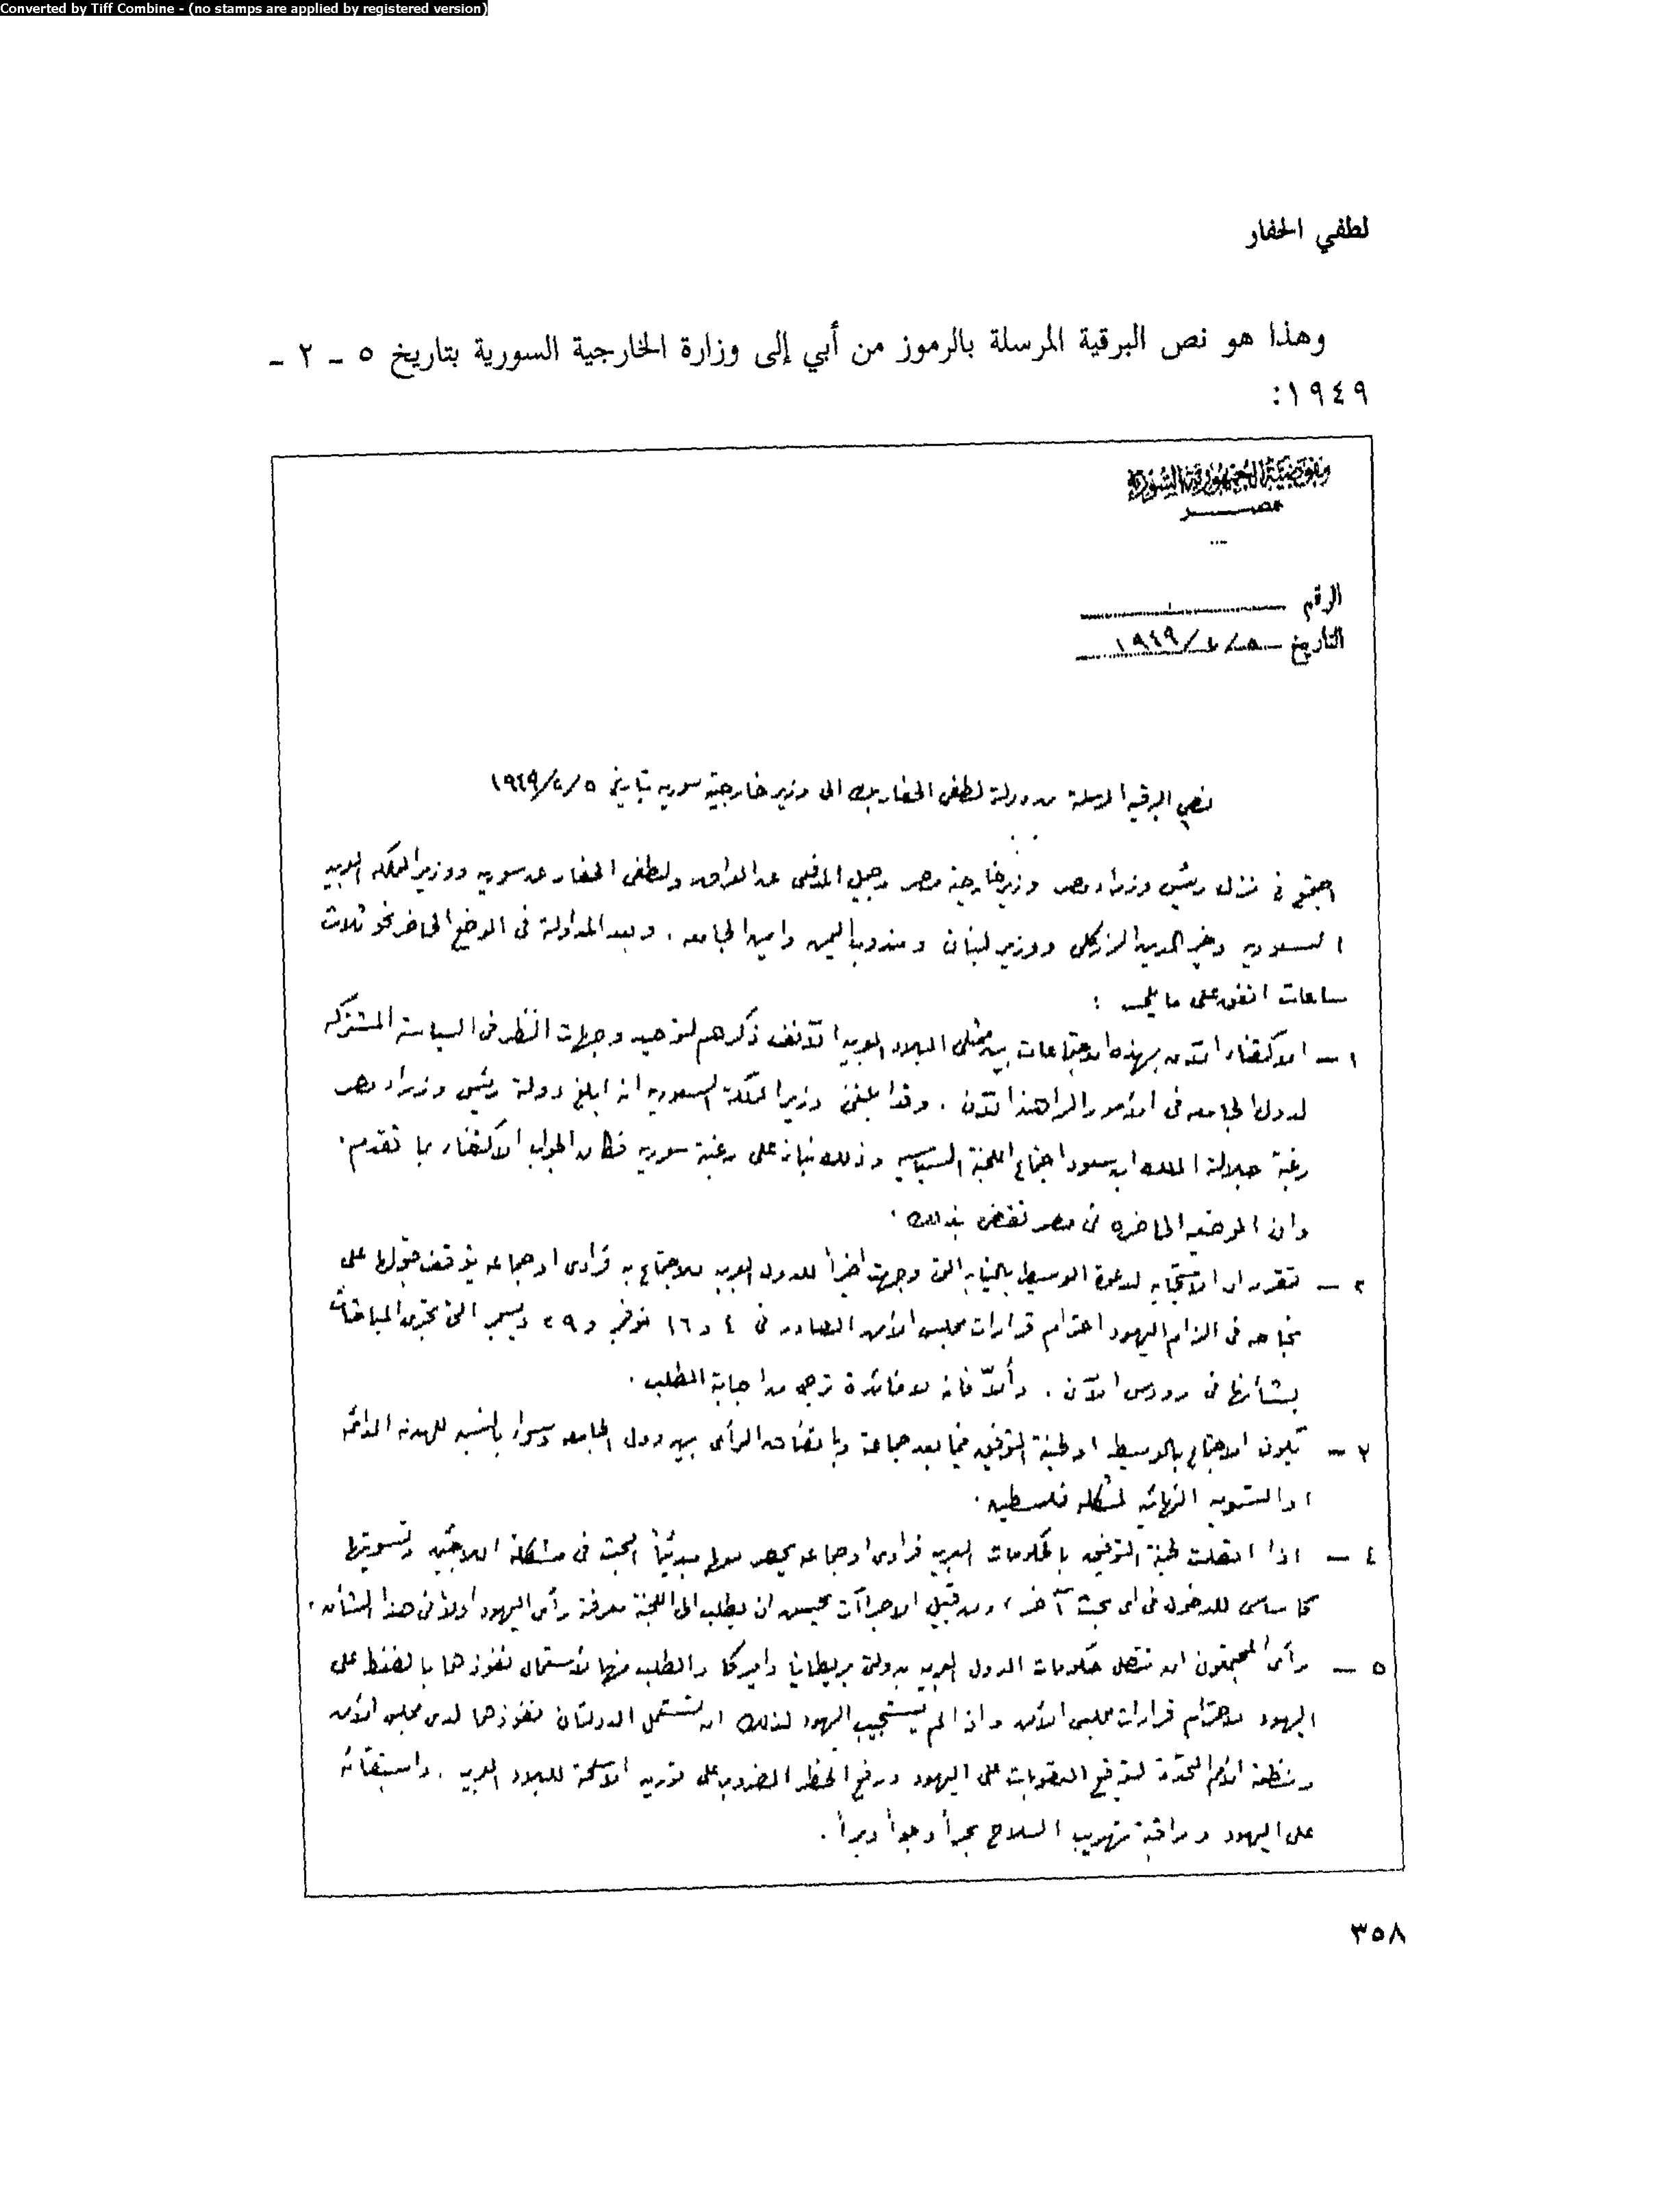 Converted by Tiff Combine - (no stamps are applied by registered version)
لطفي الحفار
وهذا هو نص البرقية المرسلة بالرموز من أبي إلى وزارة الخارجية السورية بتاريخ ٥ ـ ٢ ـ
١٩٤٩:
مفوضية الجمهورية السورية
مصر
الرقم
التاريخ ٥/٢/١٩٤٩
نص البرقيه المرسلة من دولة لطفى الحفار بك الى وزير خارجية سوريه بتاريخ ٥/٢/١٩٤٩
اجتمع فى منزل رئيس وزراء مصر وزير خارجية مصر وجميل المدفعى عن العراق ولطفى الحفار عن سوريه ووزير المملكه العربيه
السعوديه وخير الدين الزركلى ووزير لبنان ومندوب اليمن وامين الجامعه . وبعد المداولة فى الوضع الحاضر نحو ثلاث
ساعات اتفق على ما يلى :
١ – الاكتفاء الآن بهذه الاجتماعات بين ممثلى البلاد العربيه الآنف ذكرهم لتوحيد وجهات النظر فى السياسة المشتركه
لدول الجامعه فى الأمور الراهنة الآن . وقد ابلغنى وزير المملكة السعوديه انه ابلغ دولة رئيس وزراء مصر
رغبة جلالة الملك ابن سعود اجتماع اللجنة السياسيه وذلك بناء على رغبة سوريه فكان الجواب الاكتفاء بما تقدم .
وان الموضعيه الحاضره فى مصر تقضى بذلك .
٢ – تقرر ان الاستجابه لدعوة الوسيط بالنيابه التى وجهت اخيراً للدول العربيه للاجتماع به فرادى او جماعه يتوقف قبولها على
نجاحه فى الزام اليهود احترام قرارات مجلس الأمن الصادره فى ٤ و ١٦ نوفمبر و ٢٩ ديسمبر التى تجرى المباحثات
بشأنها فى رودس الآن . وألاّ فانه لا فائدة ترجى من اجابة الطلب .
٣ – يكون الاجتماع بالوسيط او لجنة التوفيق فيما بعد جماعة وباتفاق الرأى بين دول الجامعه وسواء بالنسبه للهدنه الدائمه
او التسويه النهائيه لمشكله فلسطين .
٤ – اذا اتصلت لجنة التوفيق بالحكومات العربيه فرادى او جماعه يحصر معها مبدئياً البحث فى مشكلة اللاجئين وتسويتها
كاساسى للدخول فى اى بحث آخر ، ومن قبيل الاجراآت يحسن ان يطلب الى اللجنة معرفة رأى اليهود اولاً فى هذا الشأن .
٥ – رأى المجتمعون ان تتصل حكومات الدول العربيه بدولتى بريطانيا واميركا والطلب منهما لأستعمال نفوذهما بالضغط على
اليهود لاحترام قرارات مجلس الأمن واذا لم يستجيب اليهود لذلك ان تستعمل الدولتان نفوذهما لدى مجلس الأمن
ومنظمة الأمم المتحدة لتوقيع العقوبات على اليهود ورفع الحظر المضروب على توريد الاسلحة للبلاد العربيه . واستبقائه
على اليهود ومراقبة تهريب السلاح بحراً وجواً وبراً .
٣٥٨